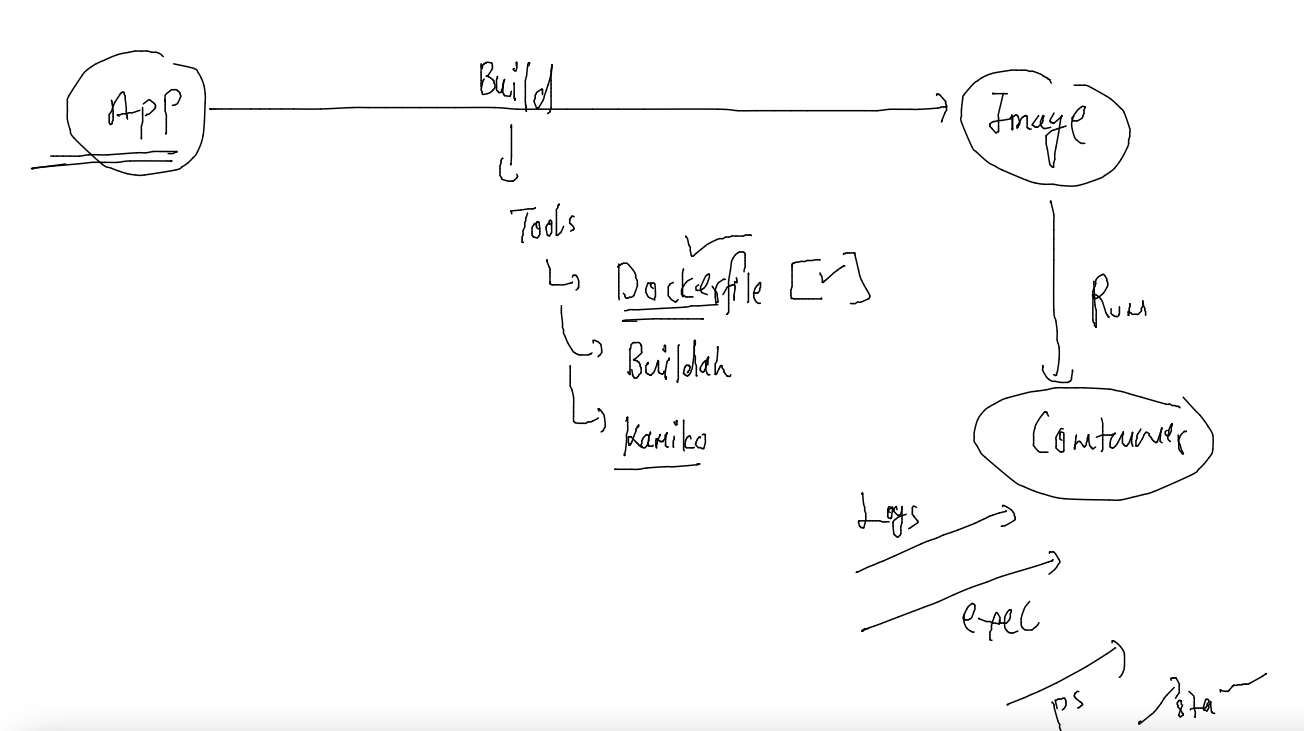 App
Build
Image
Tools
Dockerfile [✓]
Run
Buildah
Kaniko
Container
Logs
exec
ps
sta